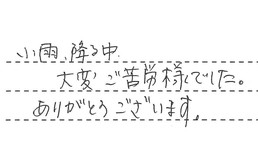 小雨、降る中
大変ご苦労様でした。
ありがとうございます。